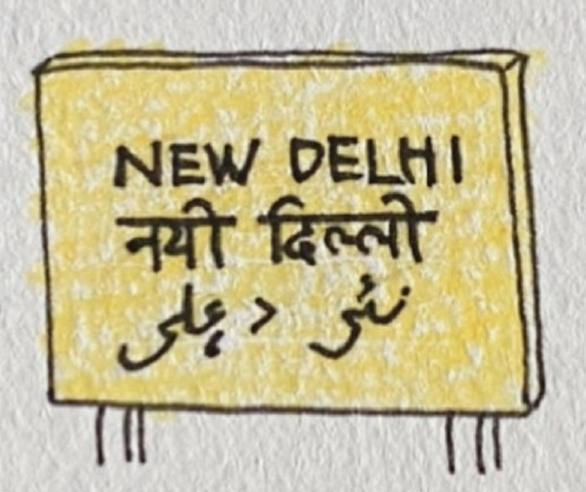 NEW DELHI
नयी दिल्ली
نئی دہلی